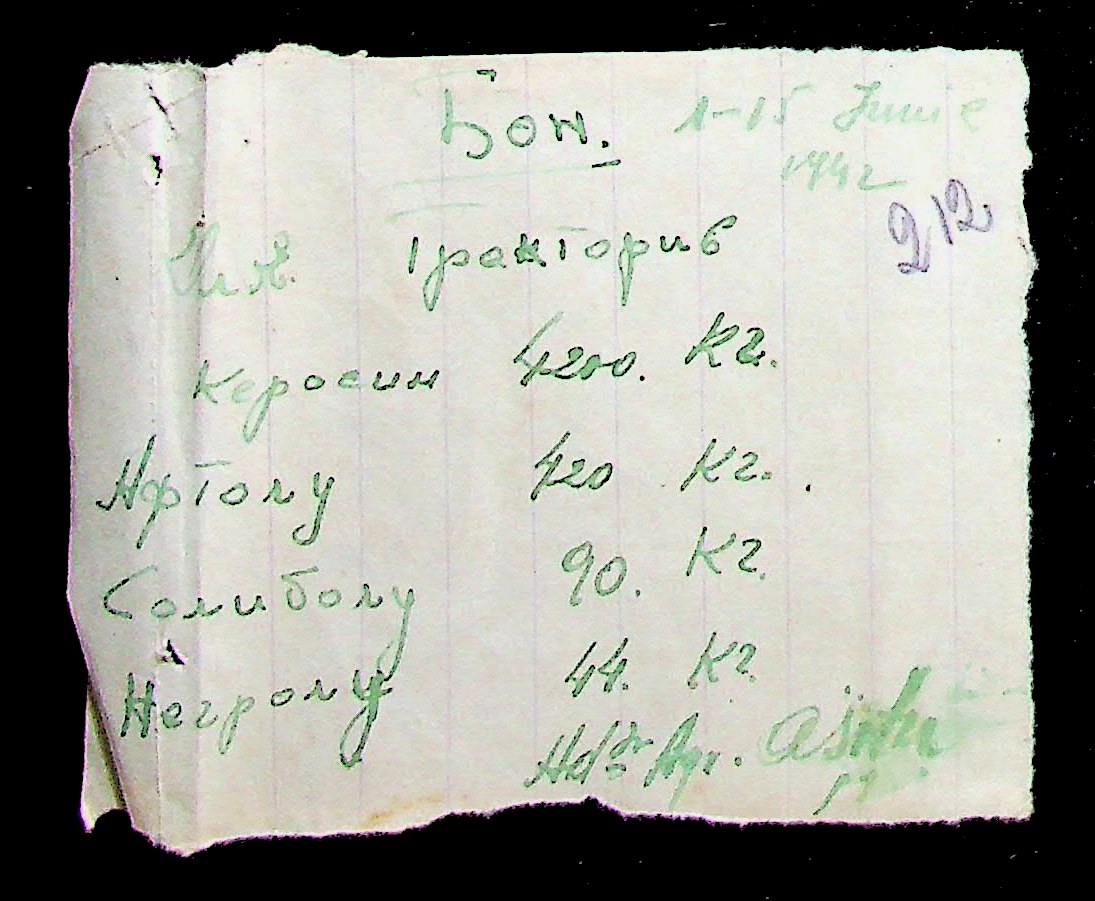 Бон. 1-15 Iunie
1942
212
Тракторив
Керосин 4200. Кг.
Нфтолу 420 Кг.
Солиболу 90. Кг.
Негролу 44. Кг.